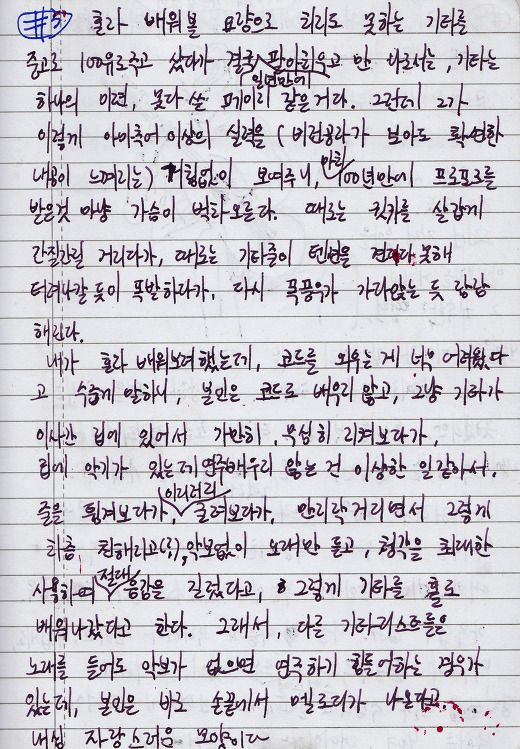 #5 홀라 배워볼 요량으로 치지도 못하는 기타를
중고로 100유로주고 샀다가 결국 일년만에 팔아치우고 만 나로서는, 기타는
하나의 이면, 못다 쓴 페이지 같은거다. 그런데 그가
이렇게 아마추어 이상의 실력을 (비전공자가 보아도 확연한
내공이 느껴지는) 거침없이 보여주니, 마치 100년만에 프로포즈를
받은것 마냥 가슴이 벅차오른다. 때로는 귓가를 살갑게
간질간질 거리다가, 때로는 기타줄이 텐션을 견디다 못해
터져나갈 듯이 폭발하다가, 다시 폭풍우가 가라앉는 듯 잠잠
해진다.
내가 홀라 배워보려했는데, 코드를 외우는 게 너무 어려웠다
고 수줍게 말하니, 본인은 코드로 배우지 않고, 그냥 기타가
이사간 집에 있어서 가만히, 무심히 지켜보다가,
집에 악기가 있는데 연주배우지 않는 건 이상한 일 같아서,
줄을 튕겨보다가, 이리저리 굴려보다가, 만지작거리면서 그렇게
차츰 친해지고(?), 악보없이 노래만 듣고, 청각을 최대한
사용하여 절대음감을 길렀다고, 그렇게 기타를 홀로
배워나갔다고 한다. 그래서, 다른 기타리스트들은
노래를 들어도 악보가 없으면 연주하기 힘들어하는 경우가
있는데, 본인은 바로 손끝에서 멜로디가 나온다고
내심 자랑스러운 모양이다